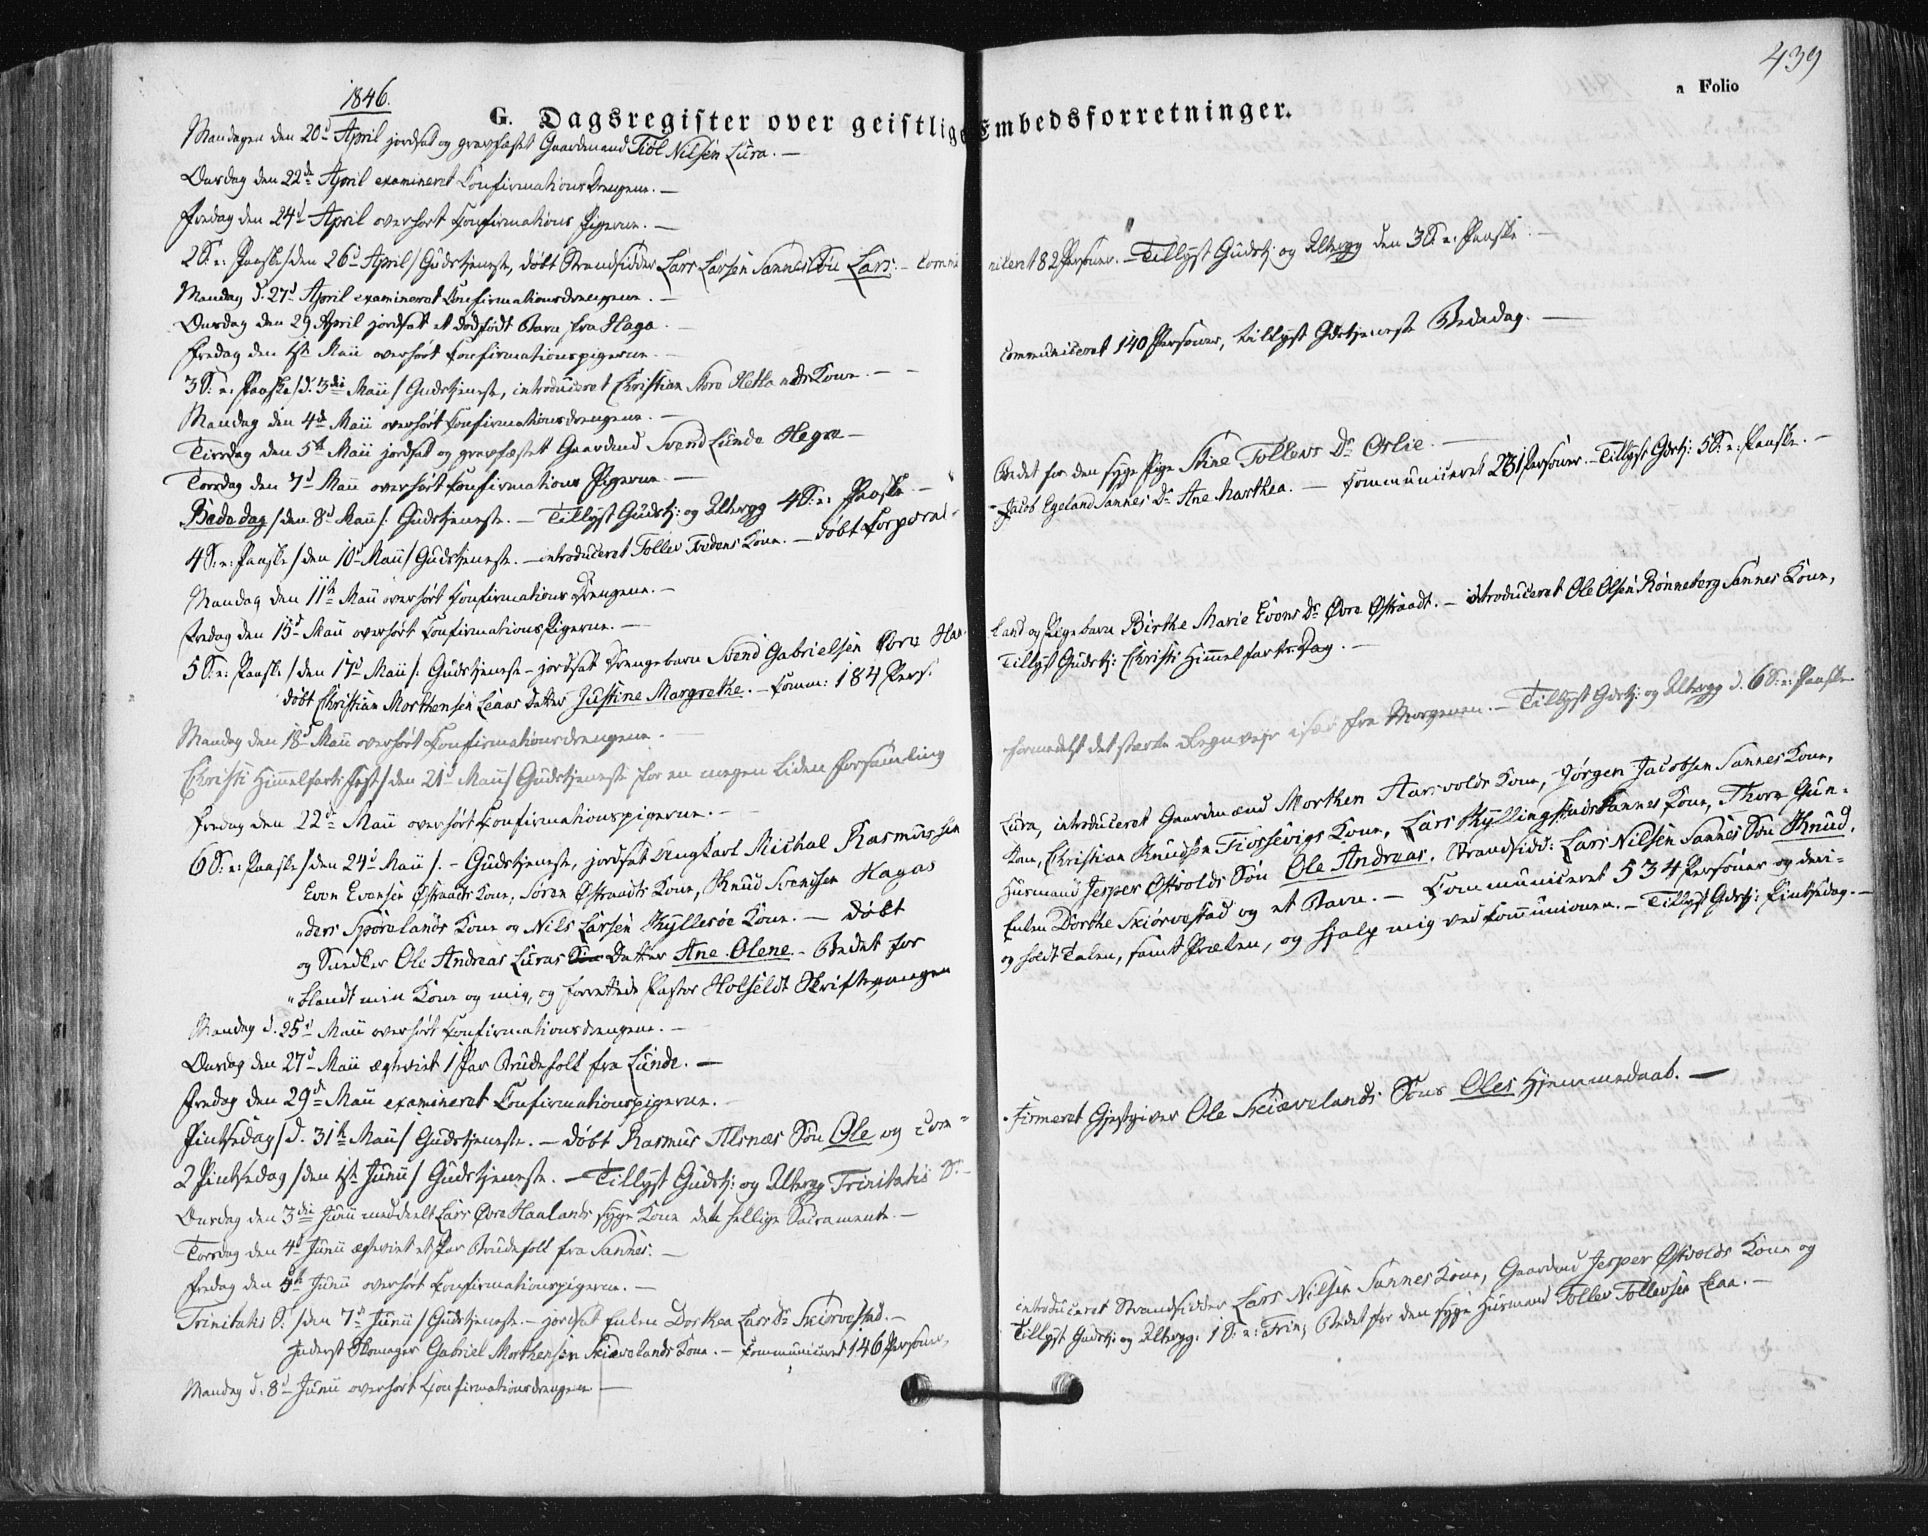 1846.
439
a Folio
G. Dagsregister over geistlige Embedsforretninger.
Mandagen den 20d April jordfæt og gravfæstet Gaardmand Tiøl Nilsen Lura. —
Onsdag den 22de April examineret Confirmations Drengene. —
Fredag den 24d April overhørt Confirmations Pigerne. —
2 S: e: Paaske /den 26d April/ Gudstjeneste, døbt Strandsidder Lars Larsen Sannes Søn Lars. — Commu
niceret 82 Personer. — Tillyst Gudstj: og Alterg den 3 S: e: Paaske. —
Mandag d. 27d April examineret Confirmationsdrengene. —
Onsdag den 29 April jordfæt et dødfødt Barn fra Hage. —
Fredag den 1ste Maii overhørt Confirmationspigerne. —
3 S: e: Paaske /d. 3die Maii/ Gudstjeneste, introduceret Christian Store Hetlands Kone. —
communiceret 140 Personer, tillyst Gudstjeneste Bededag. —
Mandag den 4de Maii overhørt Confirmationsdrengene. —
Tirsdag den 5te Maii jordfæt og gravfæstet Gaardmd Svend Lunde Hegre —
Torsdag den 7d Maii overhørt Confirmations Pigerne —
Bededag /den 8d Maii/: Gudstjeneste. — Tillyst Gudstj: og Alterg 4 S: e: Paaske. —
Bedet for den syge Pige Stine Tollevs Dr Orlie. —
4 S: e: Paaske /den 10d Maii/ Gudstjeneste. — introduceret Tollev Kone. — døbt Corporal
Jacob Egeland Sannes Dr Ane Marthea. — Communiceret 231 Personer. — Tillyst Gdstj: 5 S: e: Paaske. —
Mandag den 11te Maii overhørt Confirmations Drengene. —
Fredag den 15d Maii overhørt Confirmations Pigerne. —
5 S: e: Paaske /den 17d Maii/: Gudstjeneste — jordfæt Drengebarn Svend Gabrielsen Øvre Haa-
land og Pigebarn Birthe Marie Evens Dr Øvre Østraadt. — introduceret Ole Olsen Rønneberg Sannes Kone,
døbt Christian Morthensen Leaas Datter Justine Margrethe. — Comm: 184 Pers.
Tillyst Gudstj: Christi Himmelfarts Dag. —
Mandag den 18d Maii overhørt Confirmationsdrengene. —
Christi Himmelfarts Fest /den 21d Maii/ Gudstjeneste for en megen liden Forsamling
formedelst det stærke Regnveir især fra Morgenen. — Tillyst Gdstj: og Alterg d. 6 S: e: Paaske
Fredag den 22de Maii overhørt Confirmationspigerne. —
6 S: e: Paaske /den 24d Maii/. — Gudstjeneste, jordfæt Ungkarl Michal Rasmussen
Lura, introduceret Gaardmænd Morthen Aarsvolds Kone, Jørgen Jacobsen Sannes Kone,
Even Evensen Østraads Kone, Søren Østraadts Kone, Knud Svendsen Hagas
Kone, Christian Knudsen Tiossevigs Kone, Lars Kyllingstads Sannes Kone, Thore Gun-
ders Spørelands Kone og Nils Larsen Kyllesøe Kone. — døbt
Husmand Jesper Østvolds Søn Ole Andreas. Strandsidd: Lars Nilsen Sannes Søn Knud,
og Snedker Ole Andreas Luras Datter Ane Olene. — Bedet for
Enken Dorthe Skiørvestad og et Barn. — Communiceret 534 Personer og deri-
blandt min Kone og mig, og forrettede Pastor Holfeldt Skriftegangen
og holdt Talen, samt Præken, og hjalp mig ved Communionen. — Tillyst Gdstj: Pintsedag. —
Mandag d. 25d Maii overhørt Confirmationsdrengene. —
Onsdag den 27d Maii ægteviet 1 Par Brudefolk fra Lunde. —
Fredag den 29d Maii examineret Confirmationspigerne. —
Pintsedag /d. 31te Maii/ Gudstjeneste. — døbt Rasmus Alsnæs Søn Ole og con-
firmeret Gjestgiver Ole Skiævelands Søns Oles Hjemmedaab. —
2 Pintsedag /den 1ste Junii/ Gudstjeneste. — Tillyst Gudstj: og Alterg Trinitatis S. —
Onsdag den 3die Junii meddeelt Lars Øvre Haalands syge Kone det hellige Sacramente. —
Torsdag den 4d Junii ægteviet et Par Brudefolk fra Sannes. —
Fredag den 5te Junii overhørt Confirmationspigerne. —
Trinitatis S. /den 7d Junii/ Gudstjeneste. — jordfæt Enken Dorthea Lars Dr Skiørvestad. —
introduceret Strandsidder Lars Nilsen Sannes Kone, Gaardmd Jesper Østvolds Kone og
Inderst Skomager Gabriel Morthensen Skiævelands Kone. — Communiceret 146 Personer,
Tillyst Gudstj: og Alterg: 1 S: e: Trin; Bedet for den syge Husmand Tollev Tollevsen Leaa. —
Mandag d. 8d Junii overhørt Confirmationsdrengene —